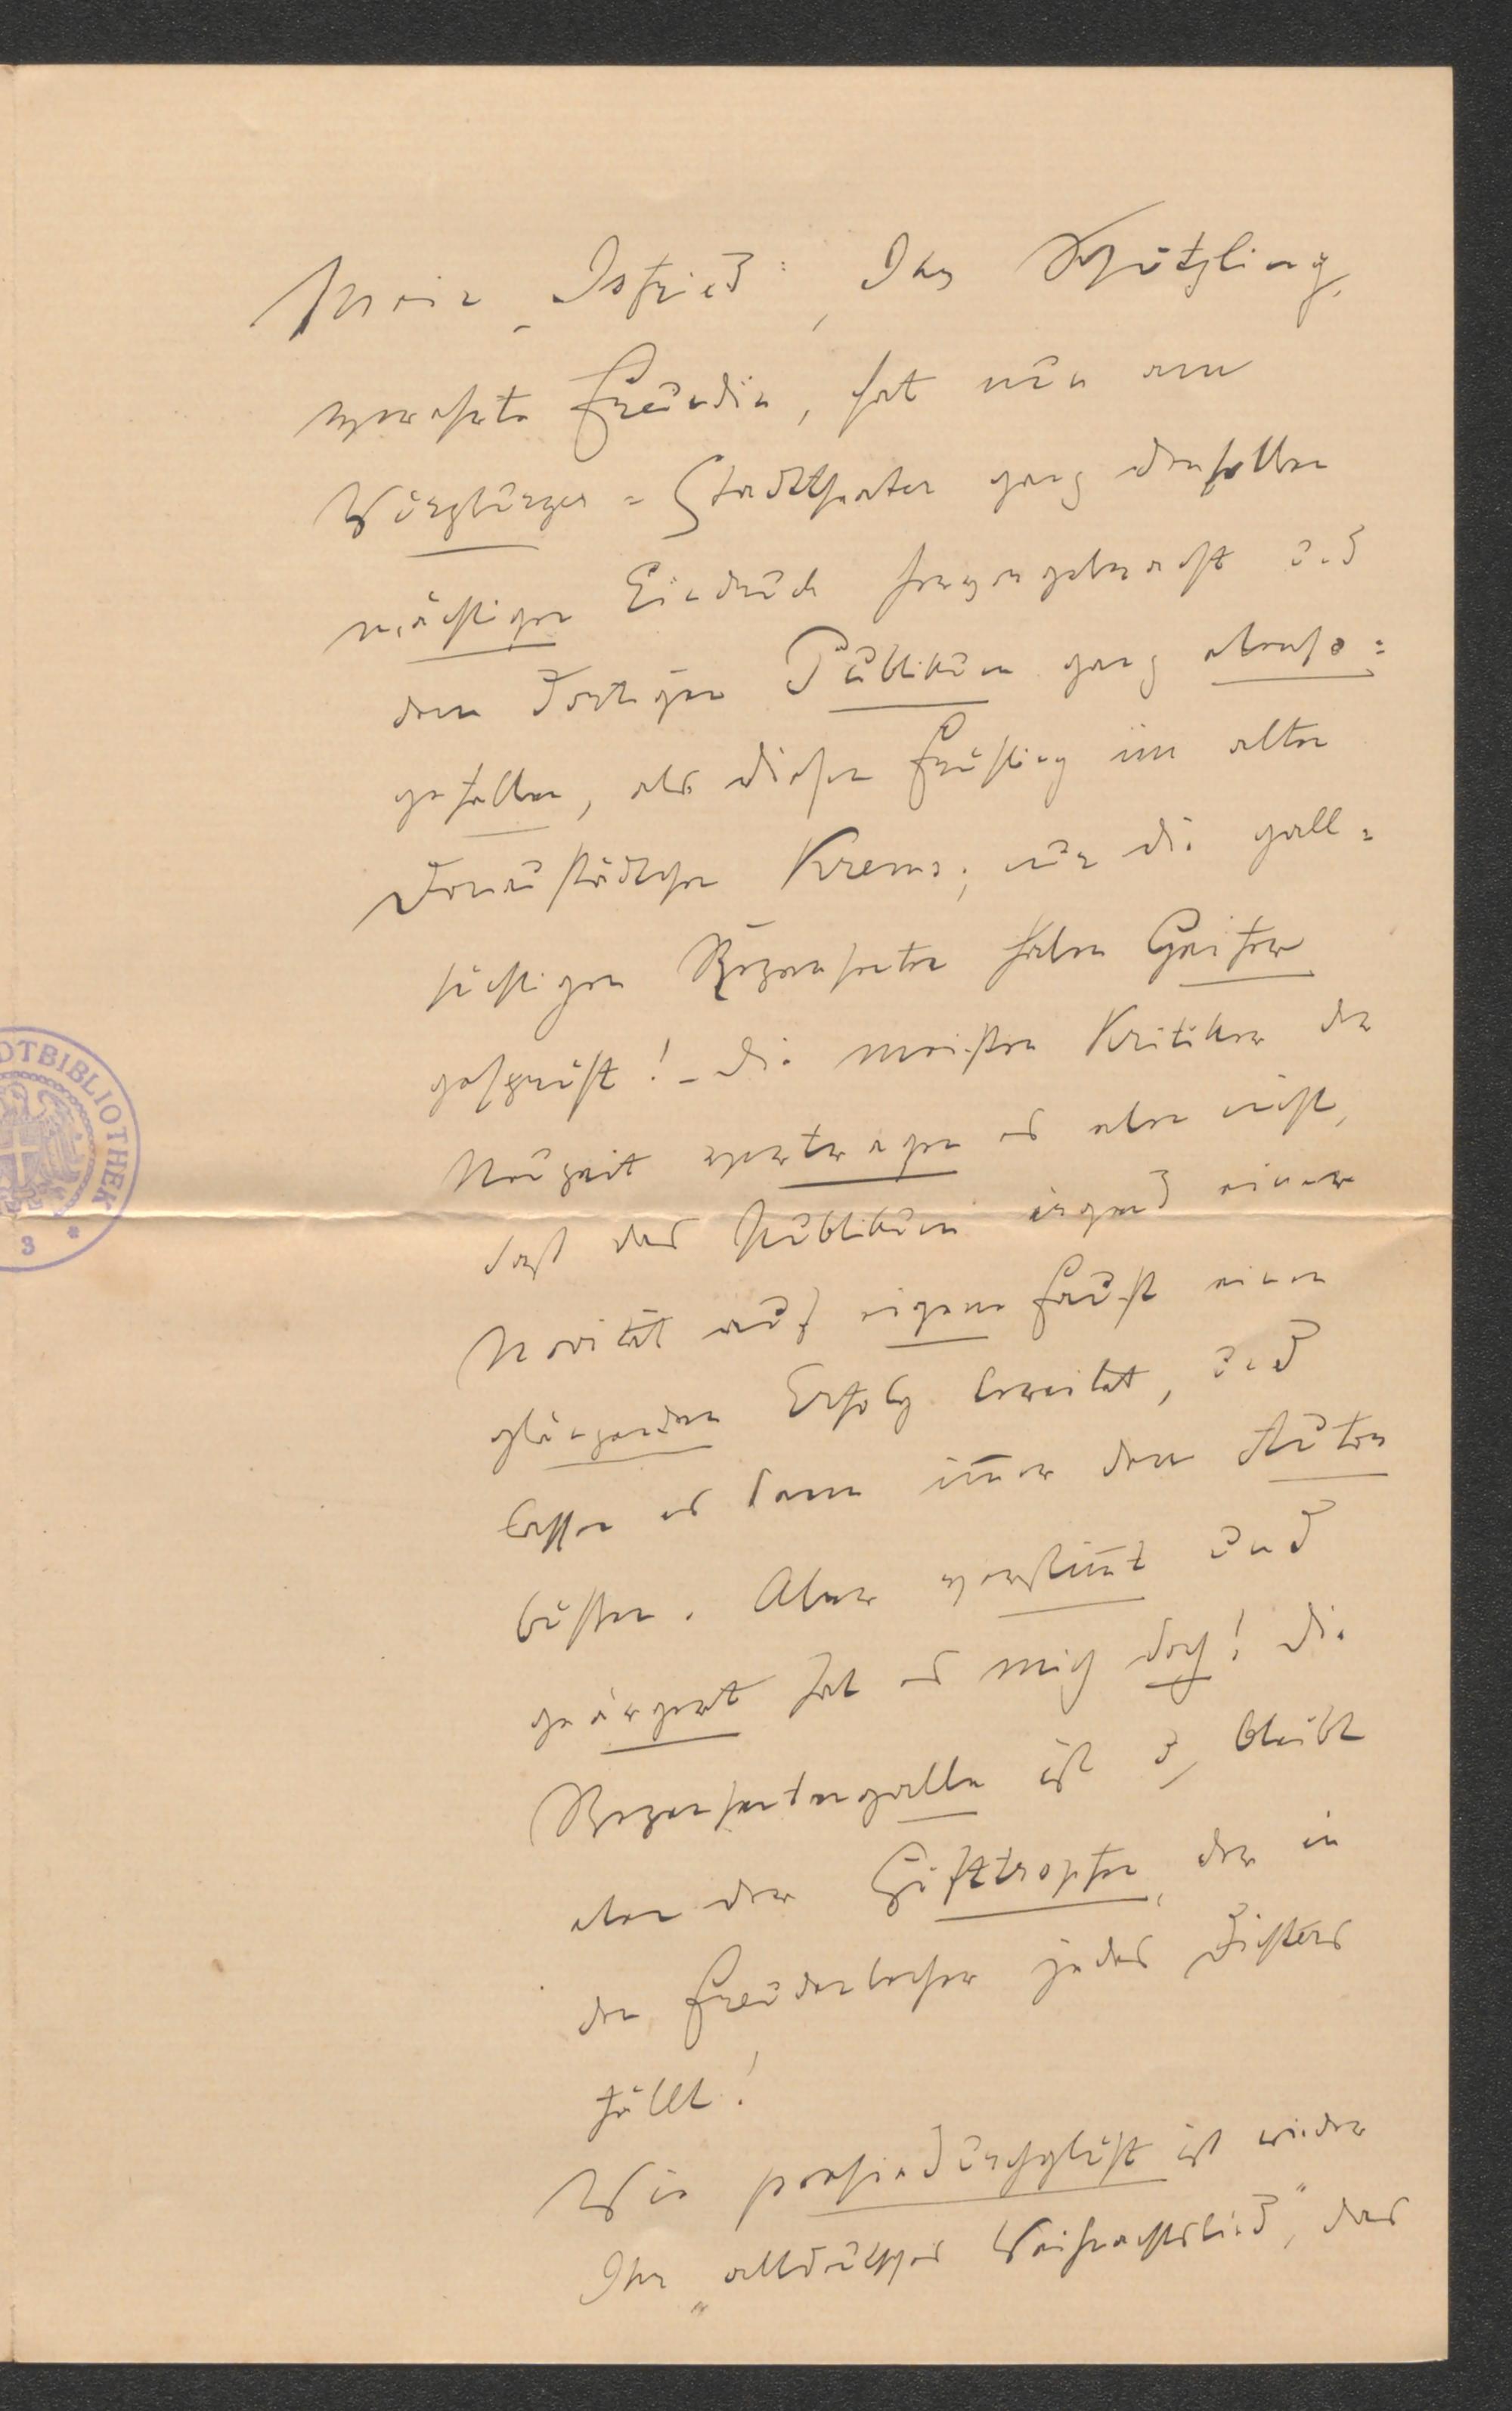 Mein „Istfried“, Ihr Schützling,
verehrte Freundin, hat nun am
Würzburger=Stadttheater ganz denselben
mächtigen Eindruck hervorgebracht und
dem dortigen Publikum ganz ebenso=
gefallen, als diesen Frühling im alten
Donaustädtchen Krems; nur die gall=
süchtigen Rezensenten haben Geifer
gesprüht! – die meisten Kritiker der
Neuzeit vertragen es eben nicht,
daß das Publikum irgend einer
Novität auf eigene Faust einen
glänzenden Erfolg bereitet, und
lassen es dann im̅er den Autor
büßen. Aber verstim̅t und
geärgert hat es mich doch! die
Rezensentengalle ist u. bleibt
eben der Gifttropfen, der in
den Freudenbecher jedes Dichters
fällt!
Wie poesiedurchglüht ist wieder
Ihr „altdeutsches Weihnachtslied“, das
DTBIBLIOTHEK
3 *